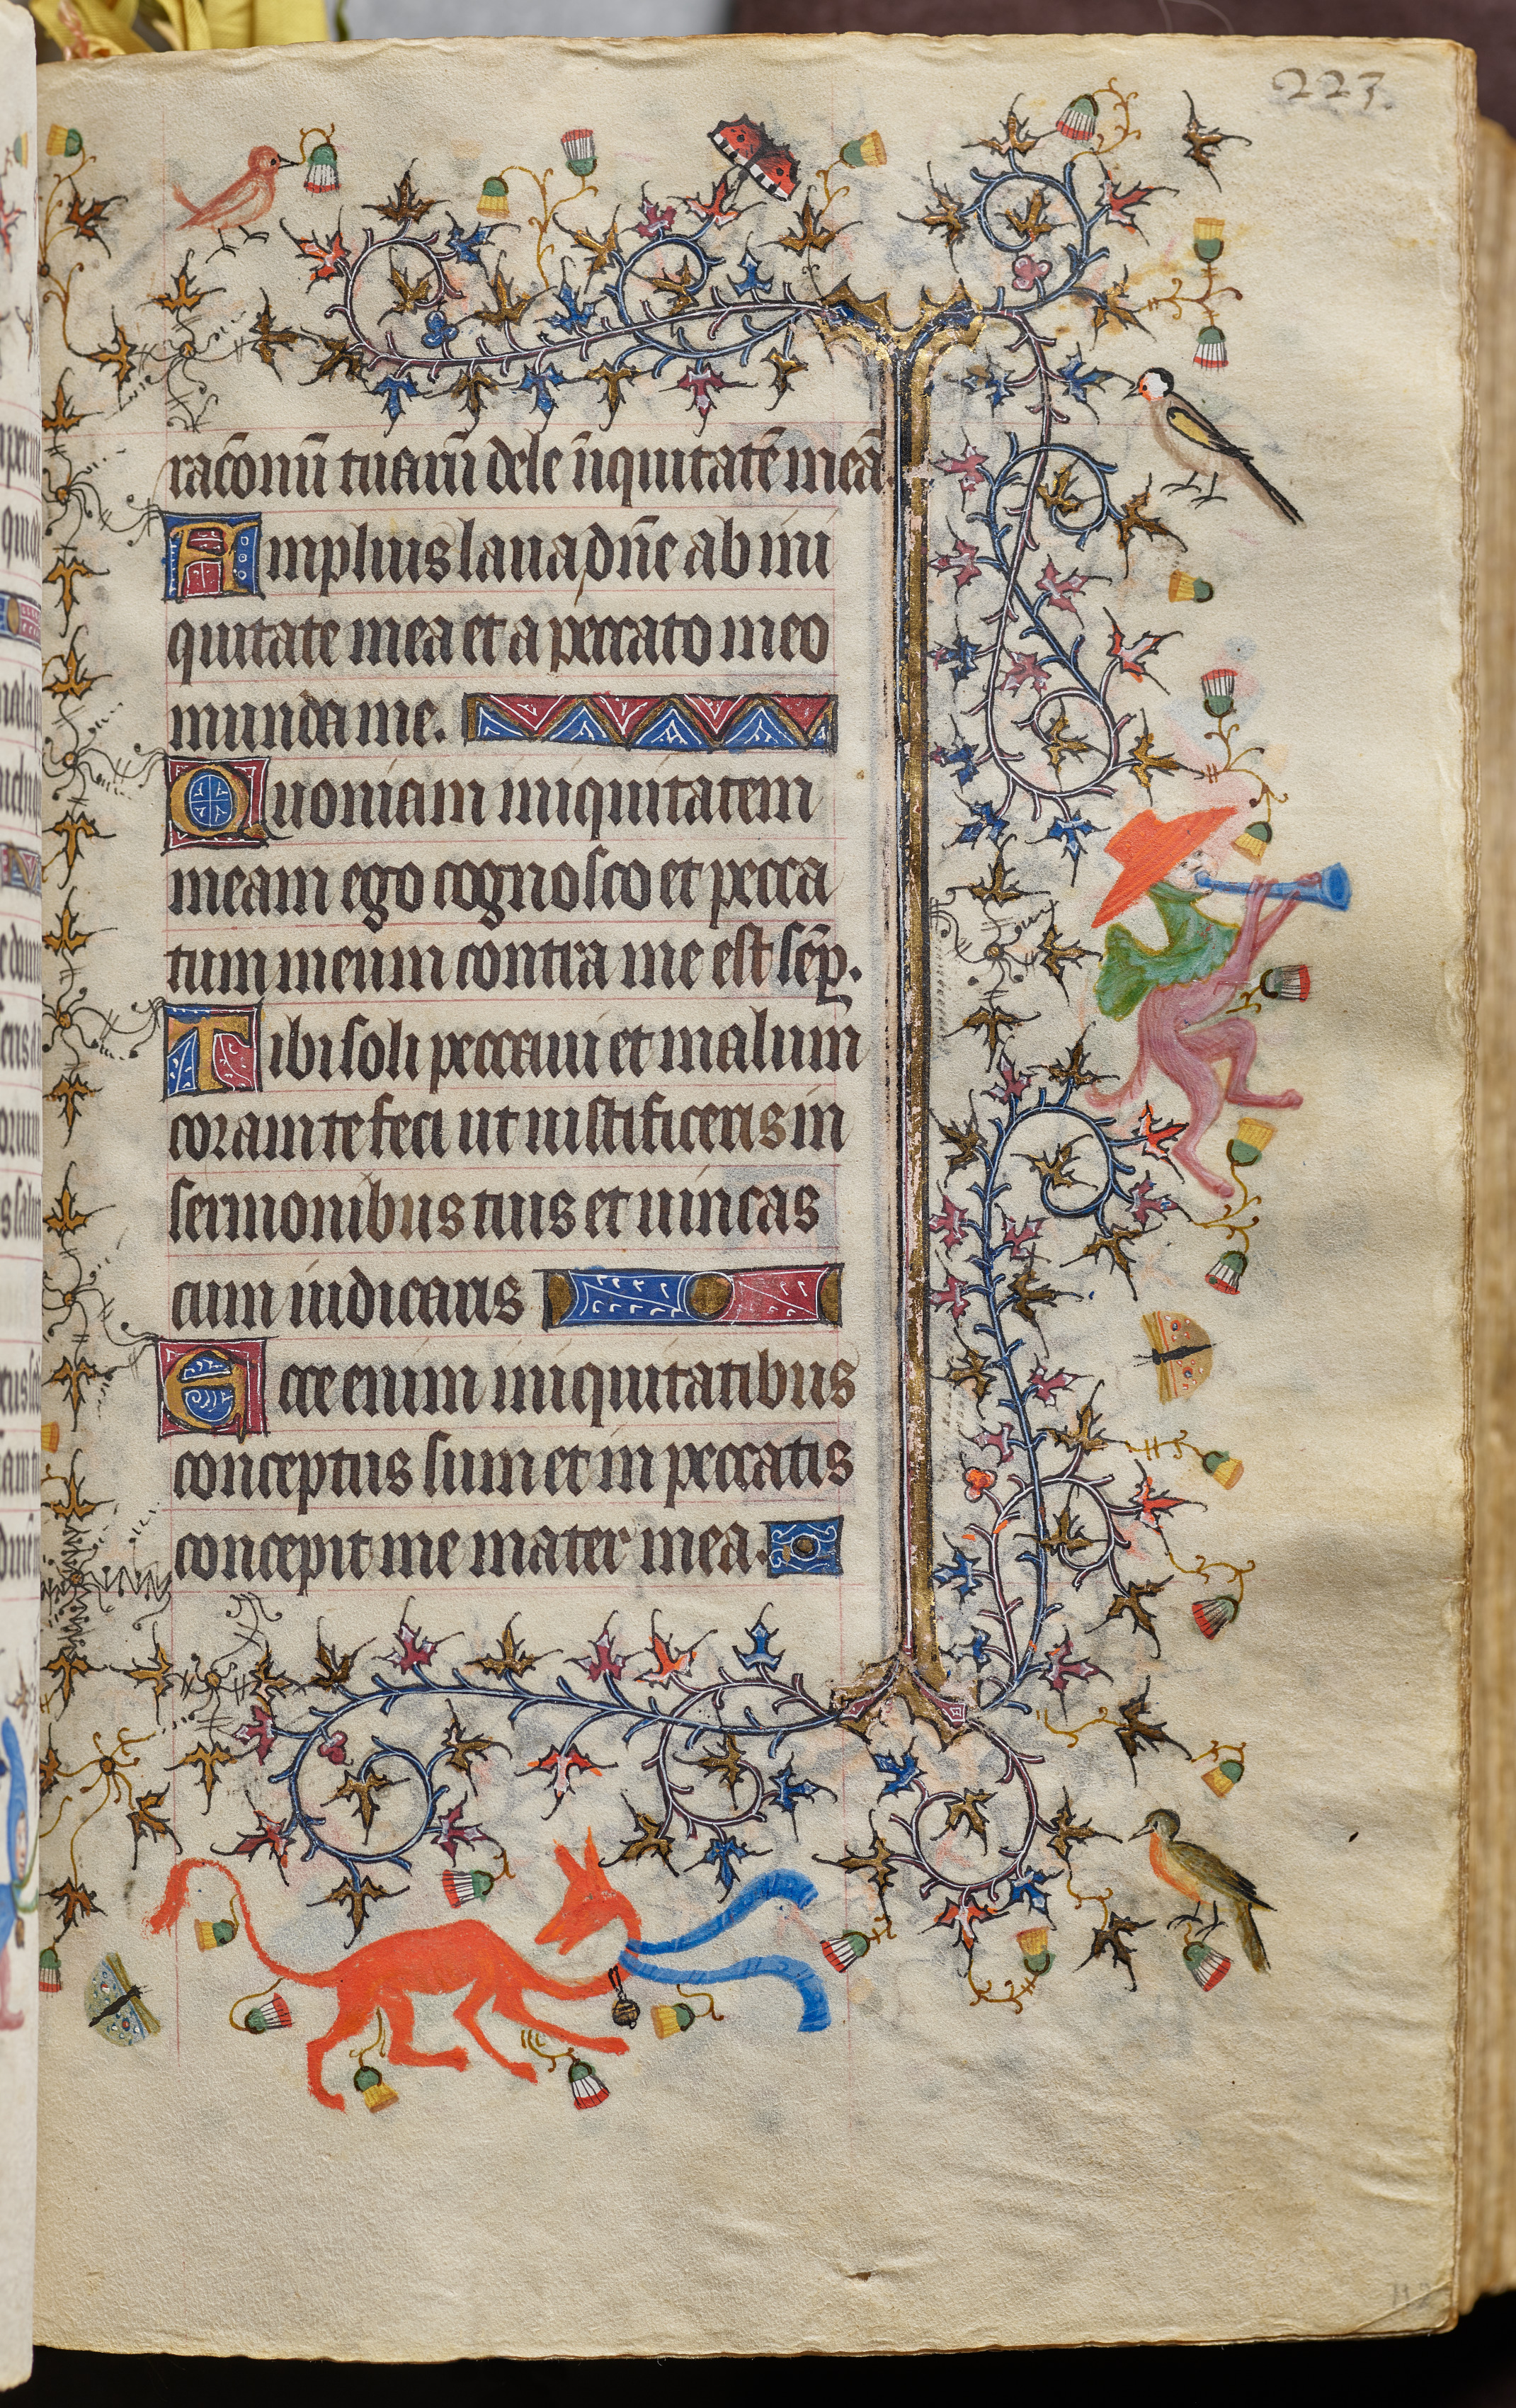 223
racōnū tuarū dele īiquitatē meā.
Amplius laua dn̄e ab ini
quitate mea et a peccato meo
munda me.
Quoniam iniquitatem
meam ego cognosco et pecca
tum meum contra me est sēp̄.
Tibi soli peccaui et malum
coram te feci ut iustificeris in
sermonibus tuis et uincas
cum iudicaris
Ecce enim iniquitatibus
conceptus sum et in peccatis
concepit me mater mea.